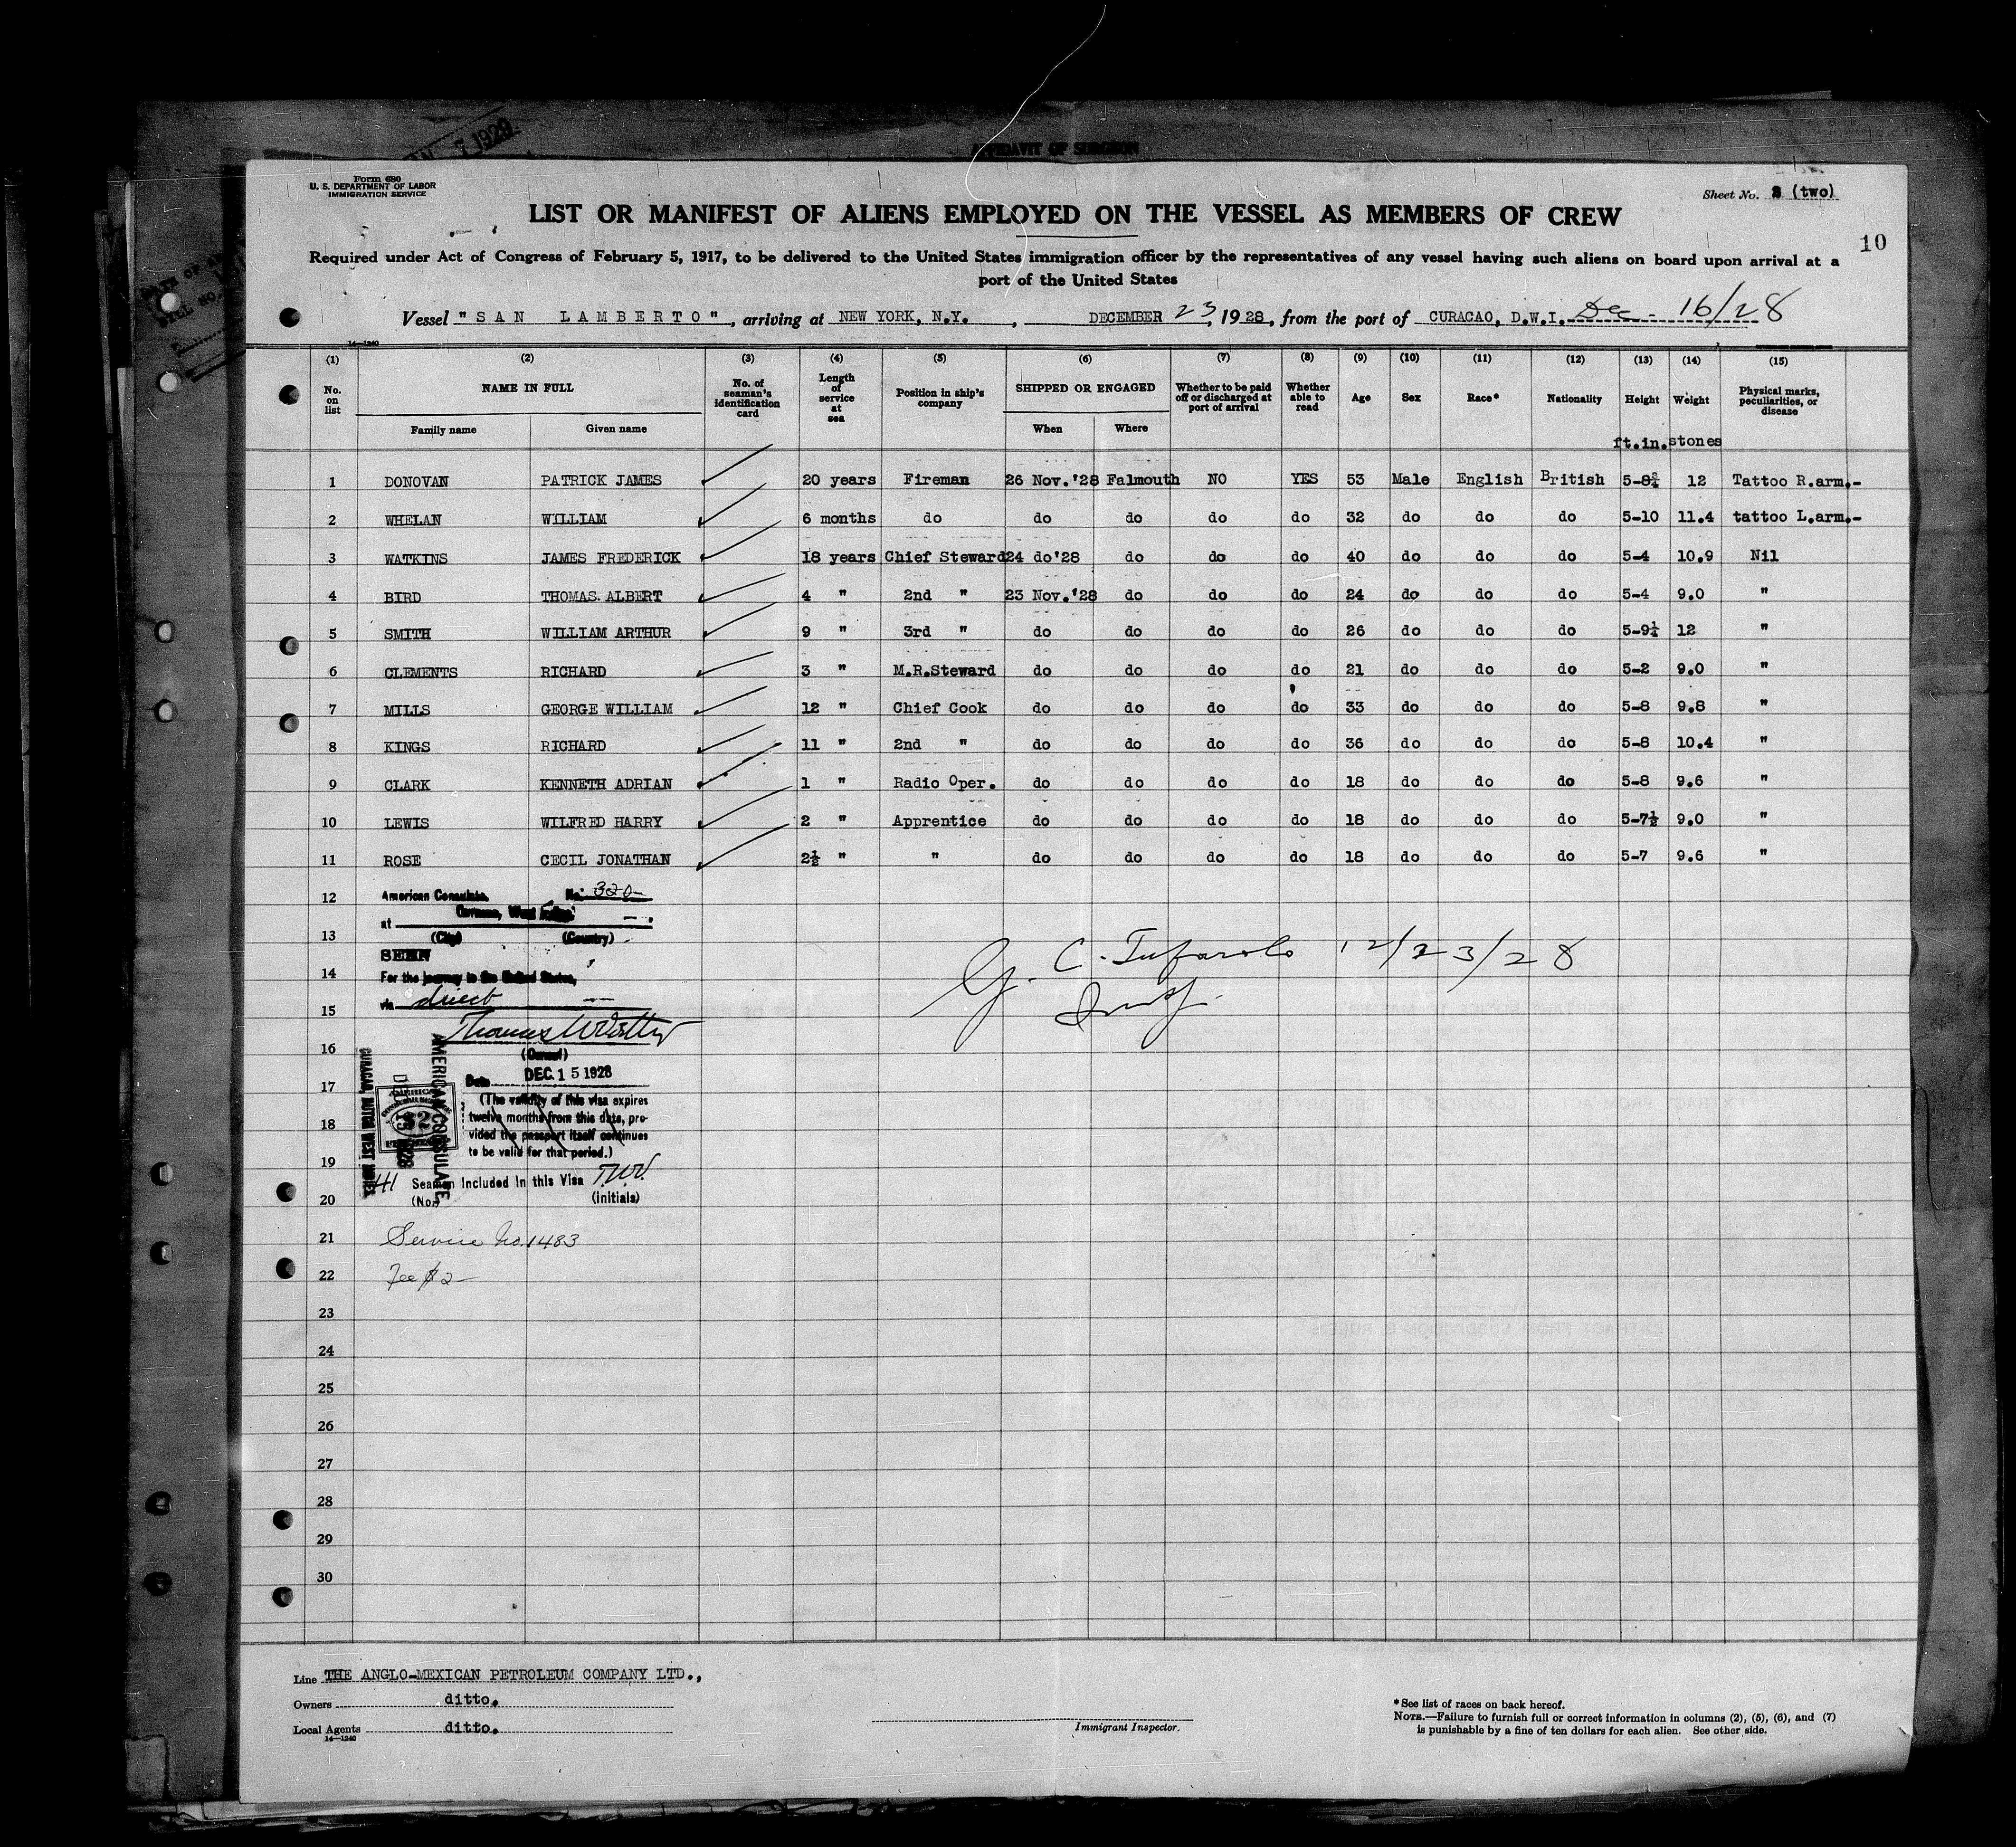 7 1929
AFFIDAVIT OF SURGEON
Form 680
U. S. DEPARTMENT OF LABOR
IMMIGRATION SERVICE
Sheet No. 2 (two)
LIST OR MANIFEST OF ALIENS EMPLOYED ON THE VESSEL AS MEMBERS OF CREW
10
Required under Act of Congress of February 5, 1917, to be delivered to the United States immigration officer by the representatives of any vessel having such aliens on board upon arrival at a
port of the United States
Vessel "SAN LAMBERTO", arriving at NEW YORK, N.Y., DECEMBER 23, 1928, from the port of CURACAO, D.W.I. Dec - 16/28
14—1240
(1) (2) (3) (4) (5) (6) (7) (8) (9) (10) (11) (12) (13) (14) (15)
No. on list NAME IN FULL No. of seaman's identification card Length of service at sea Position in ship's company SHIPPED OR ENGAGED Whether to be paid off or discharged at port of arrival Whether able to read Age Sex Race* Nationality Height Weight Physical marks, peculiarities, or disease
Family name Given name When Where ft.in. stones
1 DONOVAN PATRICK JAMES 20 years Fireman 26 Nov.'28 Falmouth NO YES 53 Male English British 5-8¾ 12 Tattoo R.arm.-
2 WHELAN WILLIAM 6 months do do do do do 32 do do do 5-10 11.4 tattoo L.arm.-
3 WATKINS JAMES FREDERICK 18 years Chief Steward 24 do'28 do do do 40 do do do 5-4 10.9 Nil
4 BIRD THOMAS. ALBERT 4 " 2nd " 23 Nov.'28 do do do 24 do do do 5-4 9.0 "
5 SMITH WILLIAM ARTHUR 9 " 3rd " do do do do 26 do do do 5-9¼ 12 "
6 CLEMENTS RICHARD 3 " M.R.Steward do do do do 21 do do do 5-2 9.0 "
7 MILLS GEORGE WILLIAM 12 " Chief Cook do do do do 33 do do do 5-8 9.8 "
8 KINGS RICHARD 11 " 2nd " do do do do 36 do do do 5-8 10.4 "
9 CLARK KENNETH ADRIAN 1 " Radio Oper. do do do do 18 do do do 5-8 9.6 "
10 LEWIS WILFRED HARRY 2 " Apprentice do do do do 18 do do do 5-7½ 9.0 "
11 ROSE CECIL JONATHAN 2½ " " do do do do 18 do do do 5-7 9.6 "
12 American Consulate, No. 320
at Curacao, West Indies
13 (City) (Country)
SEEN
14 For the journey to the United States,
via direct
15
16 (Consul)
Date DEC. 15 1928
17 (The validity of this visa expires
twelve months from this date, pro-
18 vided the passport itself continues
to be valid for that period.)
19
41 Seamen Included In this Visa T.W.V.
20 (No.) (Initials)
AMERICAN CONSULATE
CURACAO, DUTCH WEST INDIES
$2
G. C. Tufarolo 12/23/28
Insp.
21 Service No. 1483
22 Fee $2—
23
24
25
26
27
28
29
30
Line THE ANGLO-MEXICAN PETROLEUM COMPANY LTD.,
Owners ditto.
Local Agents ditto.
14—1240
Immigrant Inspector.
*See list of races on back hereof.
NOTE.—Failure to furnish full or correct information in columns (2), (5), (6), and (7)
is punishable by a fine of ten dollars for each alien. See other side.